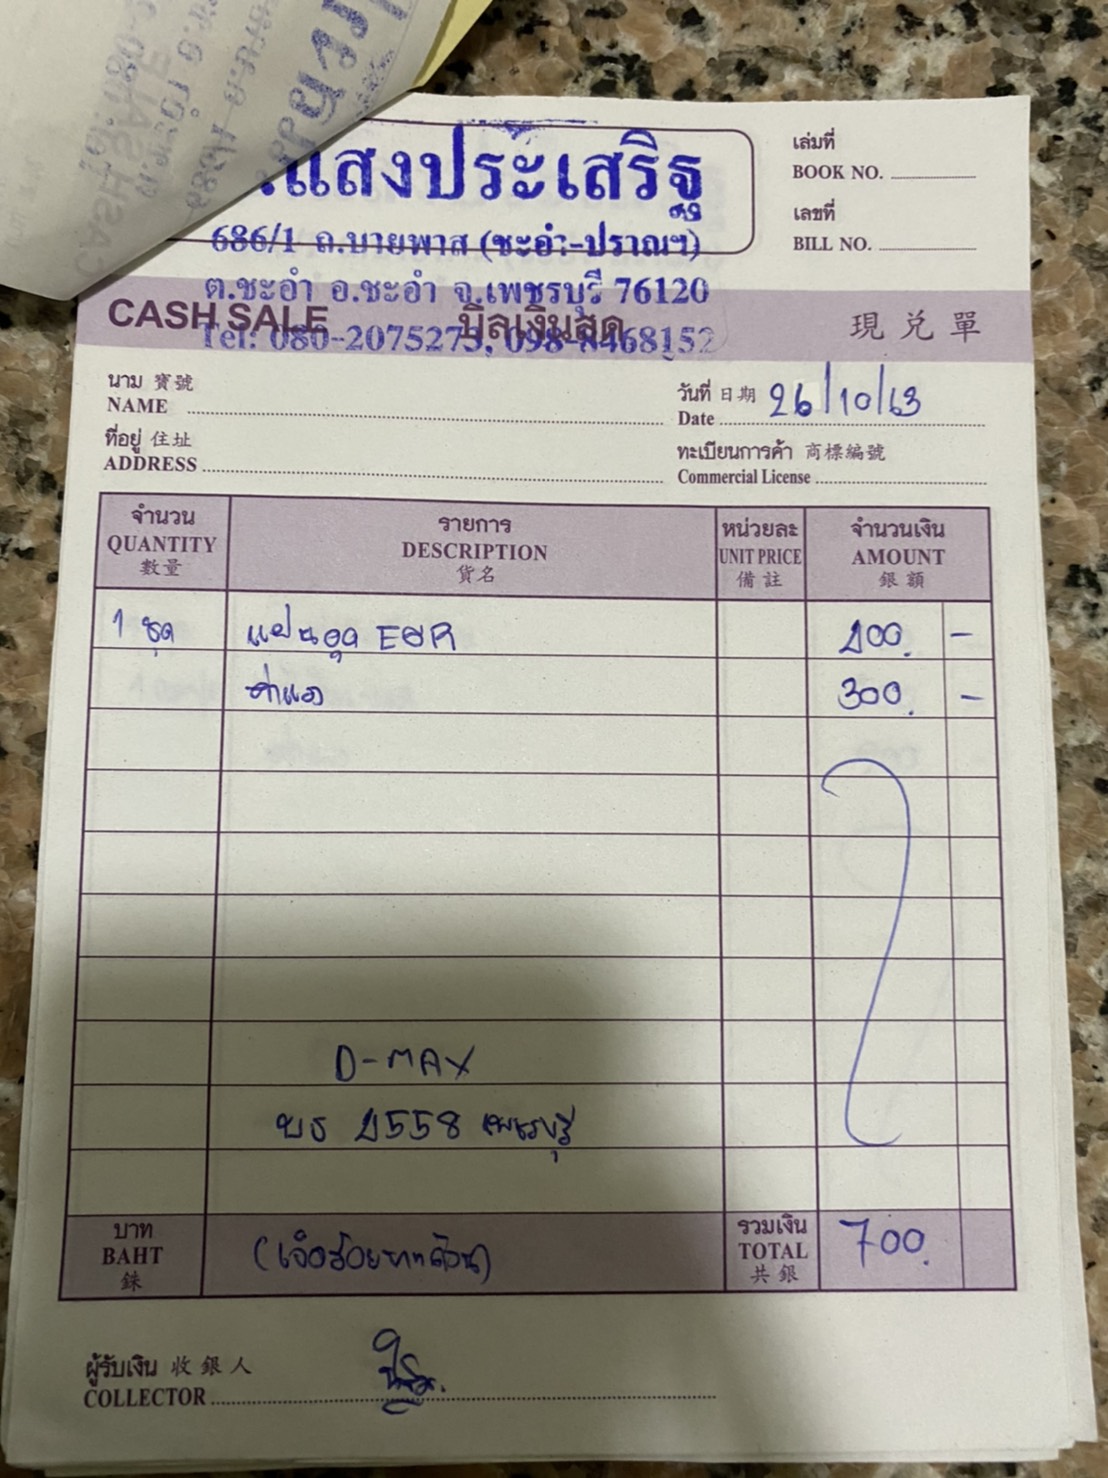 แสงประเสริฐ
686/1 ถ.บายพาส (ชะอำ-ปราณฯ)
ต.ชะอำ อ.ชะอำ จ.เพชรบุรี 76120
Tel: 080-2075273, 098-8468152
เล่มที่
BOOK NO.
เลขที่
BILL NO.
CASH SALE บิลเงินสด 現兑單
นาม 寶號
NAME
วันที่ 日期
Date 26/10/63
ที่อยู่ 住址
ADDRESS
ทะเบียนการค้า 商標編號
Commercial License
จำนวน รายการ หน่วยละ จำนวนเงิน
QUANTITY DESCRIPTION UNIT PRICE AMOUNT
數量 貨名 備註 銀額
1 ชุด แผ่นอุด EGR 400. -
ค่าแรง 300. -
D-MAX
บธ 4558 เพชรบุรี
บาท
BAHT
銖
(เจ็ดร้อยบาทถ้วน)
รวมเงิน
TOTAL
共銀
700.
ผู้รับเงิน 收銀人
COLLECTOR